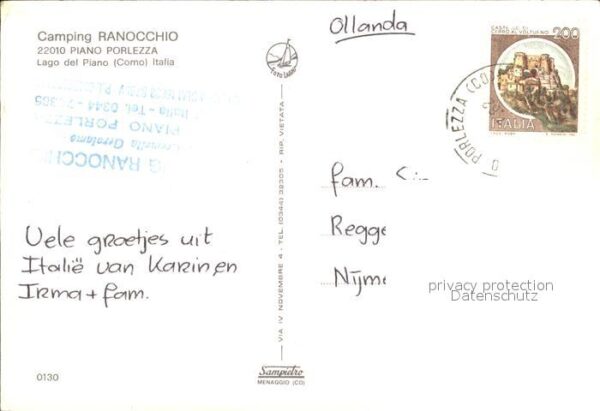 Camping RANOCCHIO
22010 PIANO PORLEZZA
Lago del Piano (Como) Italia
Ollanda
CERRO AL VOLTURNO 200
ITALIA
PORLEZZA (CO)
Italia - Tel. 0344 -
PIANO PORLEZZA
RANOCCH
fam.
Regge
Nijme
Vele groetjes uit
Italië van Karin en
Irma + fam.
VIA IV NOVEMBRE 4 - TEL. (0344) 32305 - RIP. VIETATA
Sampietro
MENAGGIO (CO)
0130
privacy protection
Datenschutz